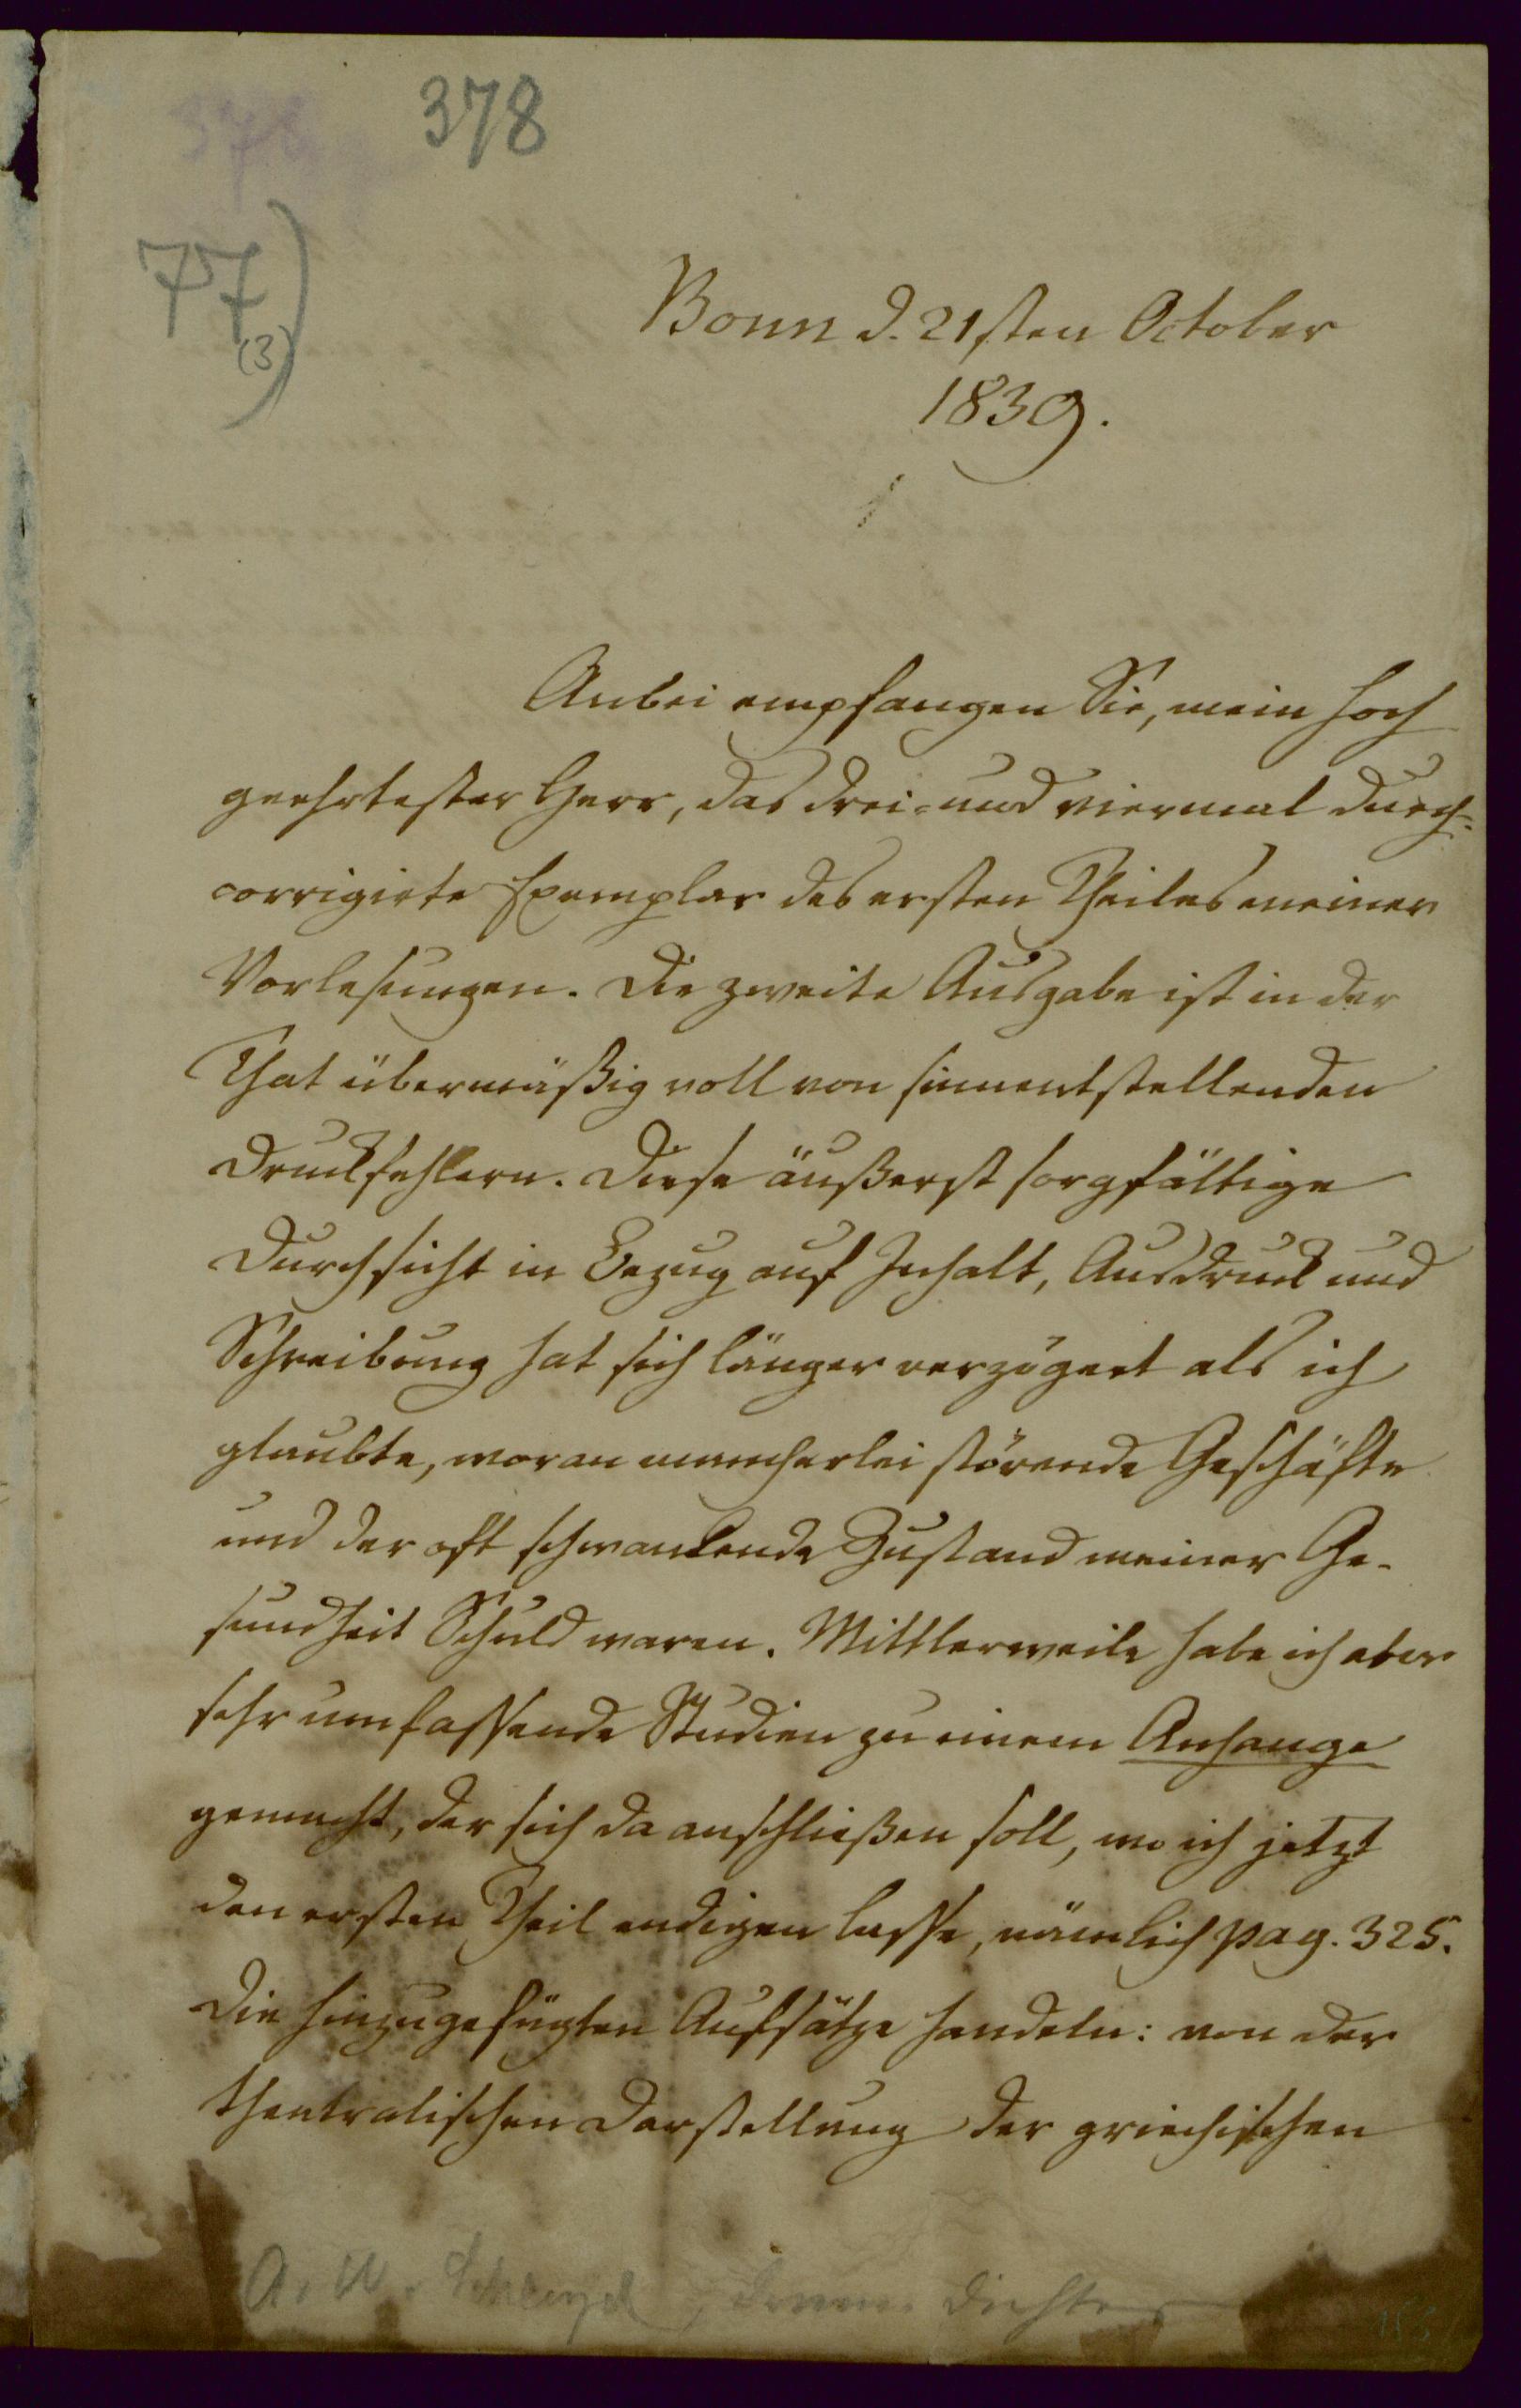 378
378
77)
(3)
Bonn d. 21sten October
1839.
Anbei empfangen Sie, mein hoch
geehrtester Herr, das drei- und viermal durch-
corrigirte Exemplar des ersten Theiles meiner
Vorlesungen. Die zweite Ausgabe ist in der
That übermäßig voll von sinnentstellenden
Druckfehlern. Diese äußerst sorgfältige
Durchsicht in Bezug auf Inhalt, Ausdruck und
Schreibung hat sich länger verzögert als ich
glaubte, woran mancherlei störende Geschäfte
und der oft schwankende Zustand meiner Ge-
sundheit Schuld waren. Mittlerweile habe ich aber
sehr umfassende Studien zu einem Anhange
gemacht, der sich da anschließen soll, wo ich jetzt
den ersten Theil endigen lasse, nämlich pag. 325.
Die hinzugefügten Aufsätze handeln: von der
theatralischen Darstellung der griechischen
A. W. Schlegel, Dichter